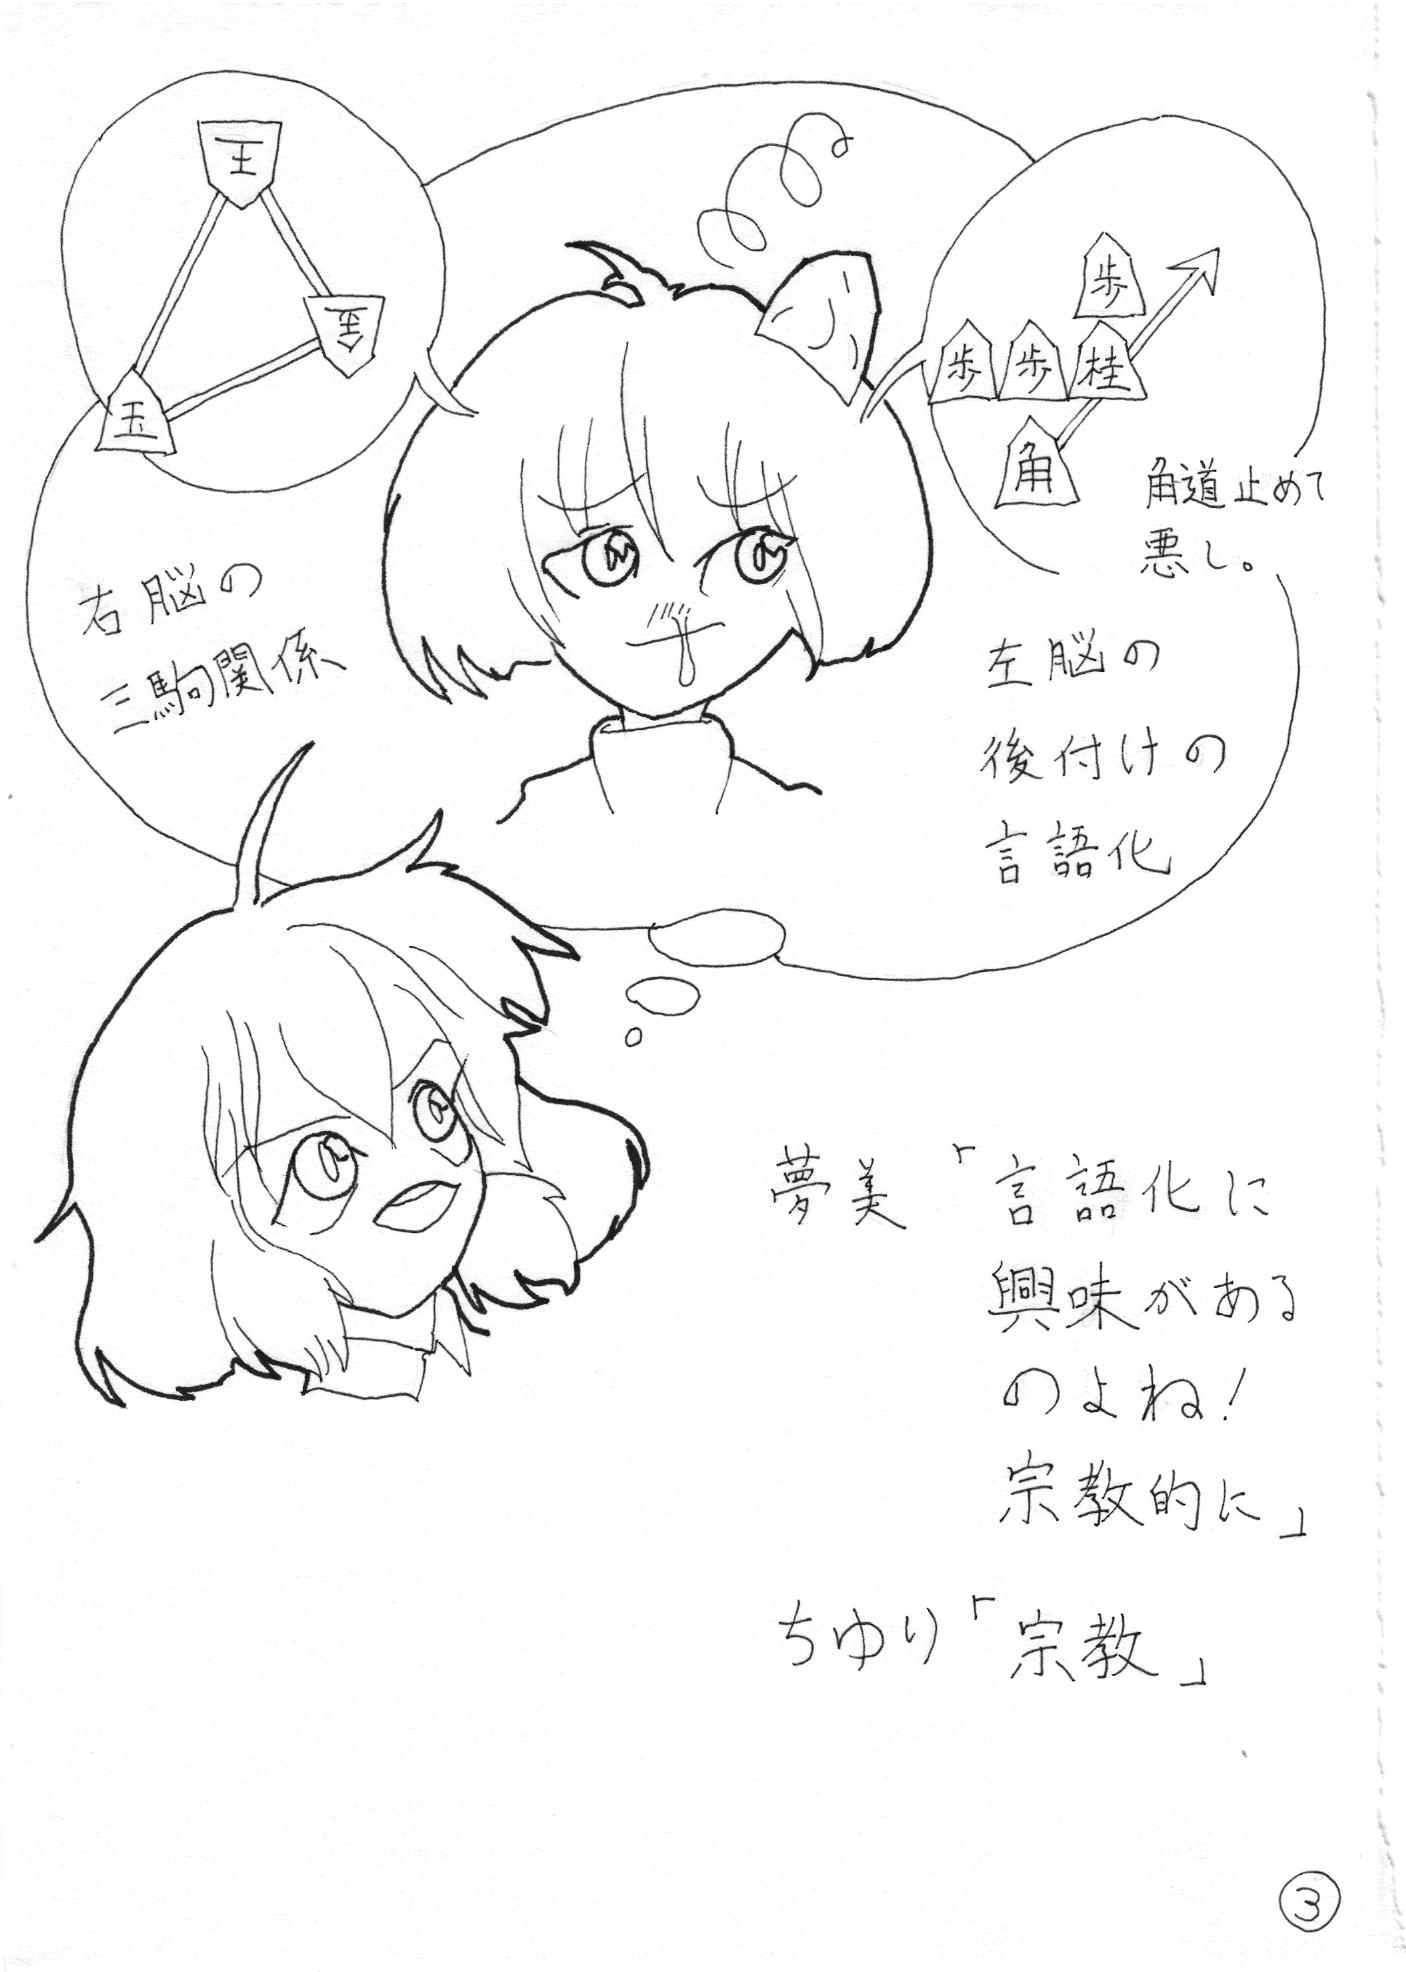 王
金
玉
右脳の
三駒関係
歩
歩歩桂
角
角道止めて
悪し。
左脳の
後付けの
言語化
夢美「言語化に
興味がある
のよね！
宗教的に」
ちゆり「宗教」
3